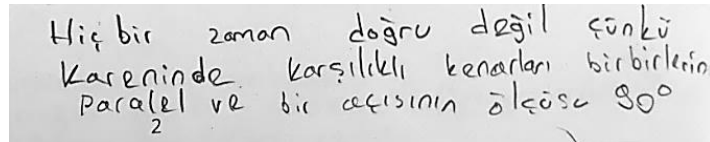 Hiç bir zaman doğru değil çünkü
Kareninde karşılıklı kenarları birbirlerin
paralel ve bir açısının ölçüsü 90°
2